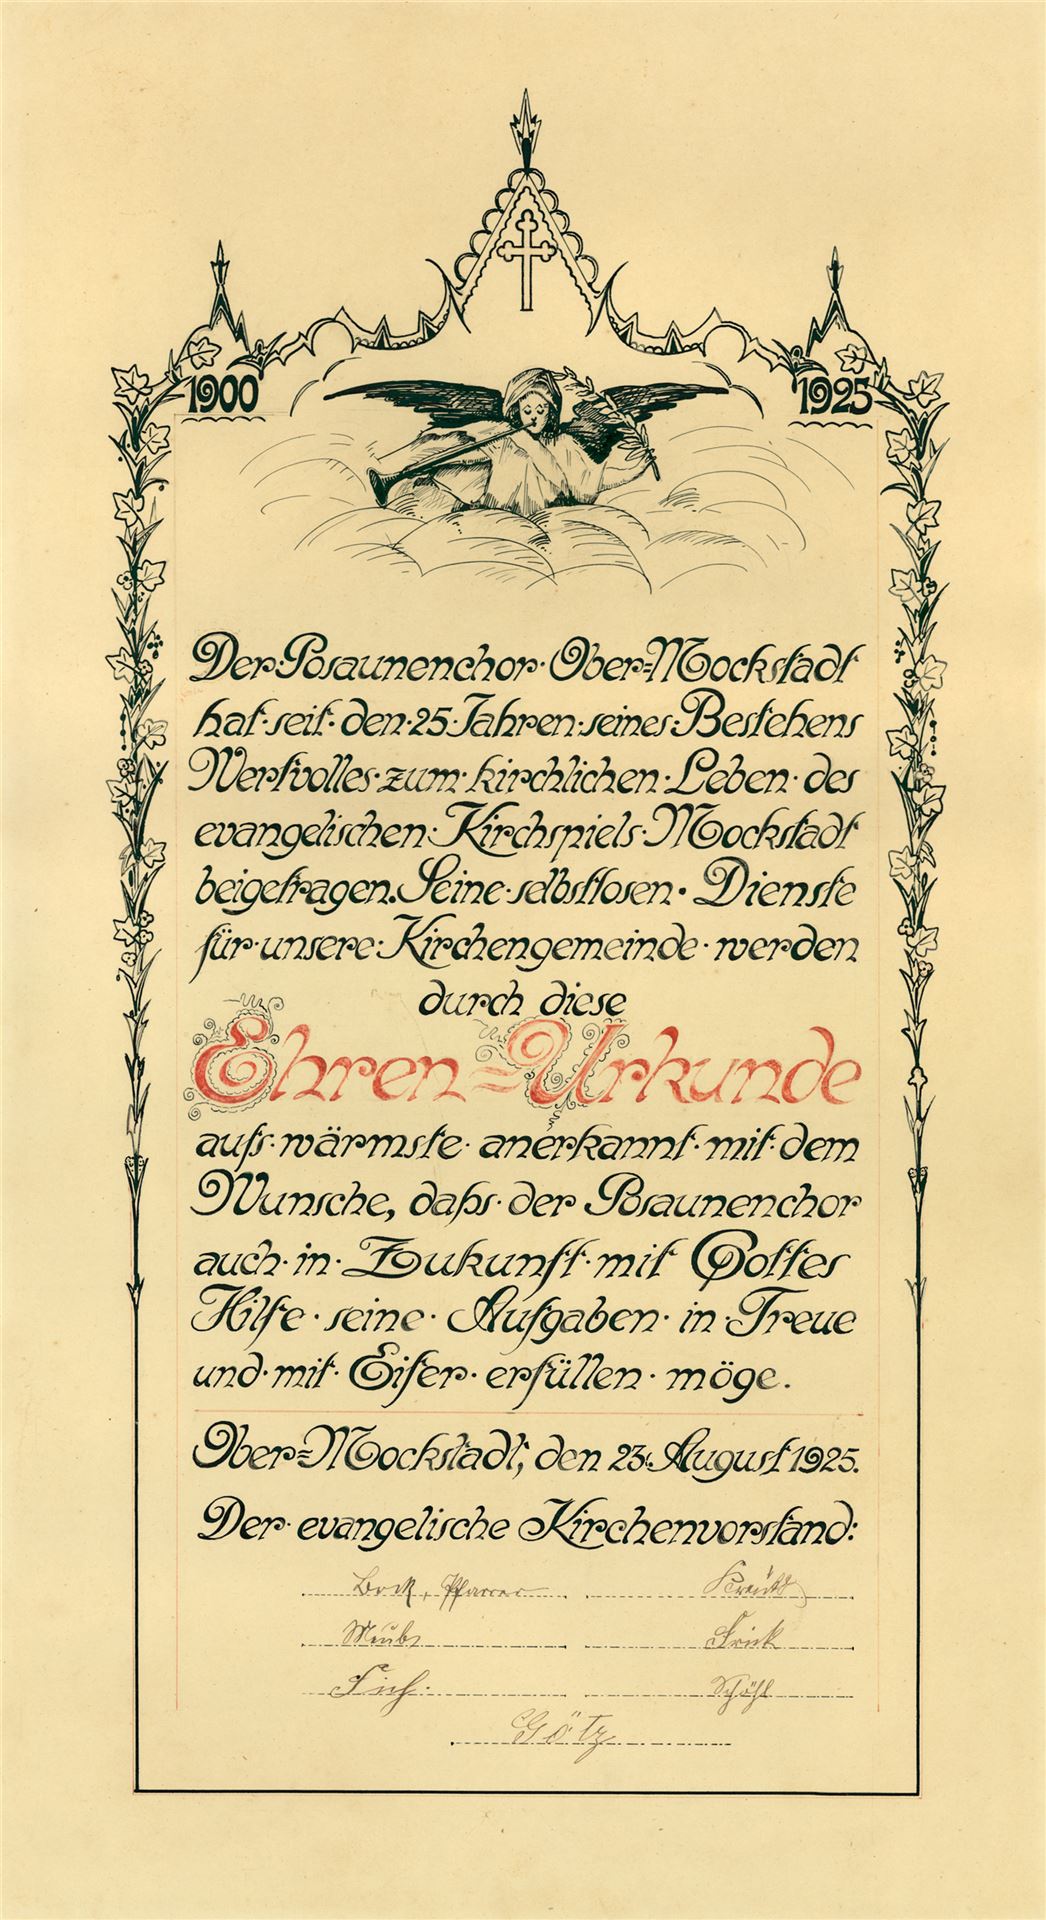 1900 1925
Der Posaunenchor Ober=Mockstadt
hat seit den 25 Jahren seines Bestehens
Wertvolles zum kirchlichen Leben des
evangelischen Kirchspiels Mockstadt
beigetragen. Seine selbstlosen Dienste
für unsere Kirchengemeinde werden
durch diese
Ehren=Urkunde
aufs wärmste anerkannt mit dem
Wunsche, daß der Posaunenchor
auch in Zukunft mit Gottes
Hilfe seine Aufgaben in Treue
und mit Eifer erfüllen möge.
Ober=Mockstadt, den 23. August 1925.
Der evangelische Kirchenvorstand:
Pfarrer
Frick
Götz